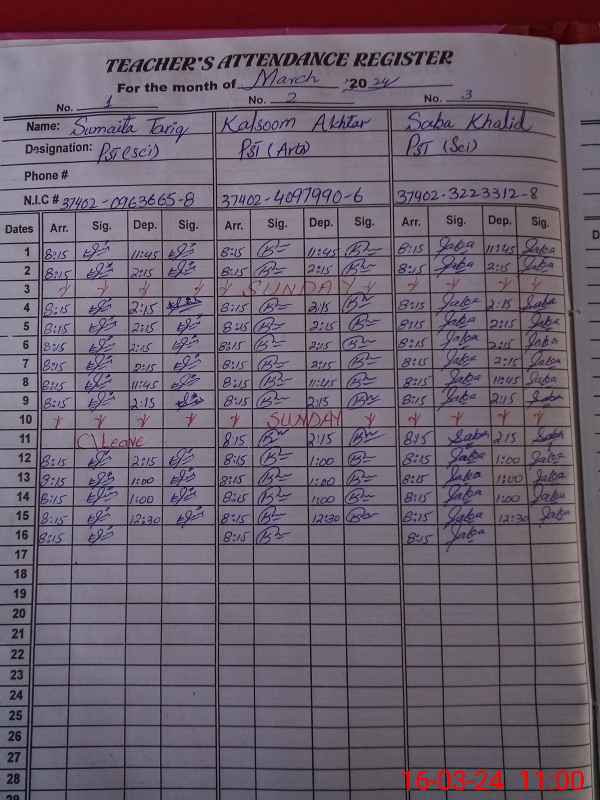 TEACHER'S ATTENDANCE REGISTER
For the month of March 2024
No. 1 No. 2 No. 3
Name: Sumaita Tariq Kalsoom Akhtar Saba Khalid
Designation: PST (Sci) PST (Arts) PST (Sci)
Phone #
N.I.C # 37402-0963665-8 37402-4097990-6 37402-3223312-8
Dates Arr. Sig. Dep. Sig. Arr. Sig. Dep. Sig. Arr. Sig. Dep. Sig.
1 8:15 11:45 8:15 11:45 8:15 Saba 11:45 Saba
2 8:15 2:15 8:15 2:15 8:15 Saba 2:15 Saba
3 SUNDAY
4 8:15 2:15 8:15 2:15 8:15 Saba 2:15 Saba
5 8:15 2:15 8:15 2:15 8:15 Saba 2:15 Saba
6 8:15 2:15 8:15 2:15 8:15 Saba 2:15 Saba
7 8:15 2:15 8:15 2:15 8:15 Saba 2:15 Saba
8 8:15 11:45 8:15 11:45 8:15 Saba 11:45 Saba
9 8:15 2:15 8:15 2:15 8:15 Saba 2:15 Saba
10 SUNDAY
11 C\LEONE 8:15 2:15 8:15 Saba 2:15 Saba
12 8:15 2:15 8:15 1:00 8:15 Saba 1:00 Saba
13 8:15 1:00 8:15 1:00 8:15 Saba 1:00 Saba
14 8:15 1:00 8:15 1:00 8:15 Saba 1:00 Saba
15 8:15 12:30 8:15 12:30 8:15 Saba 12:30 Saba
16 8:15 8:15 8:15 Saba
17
18
19
20
21
22
23
24
25
26
27
28
16-03-24 11:00